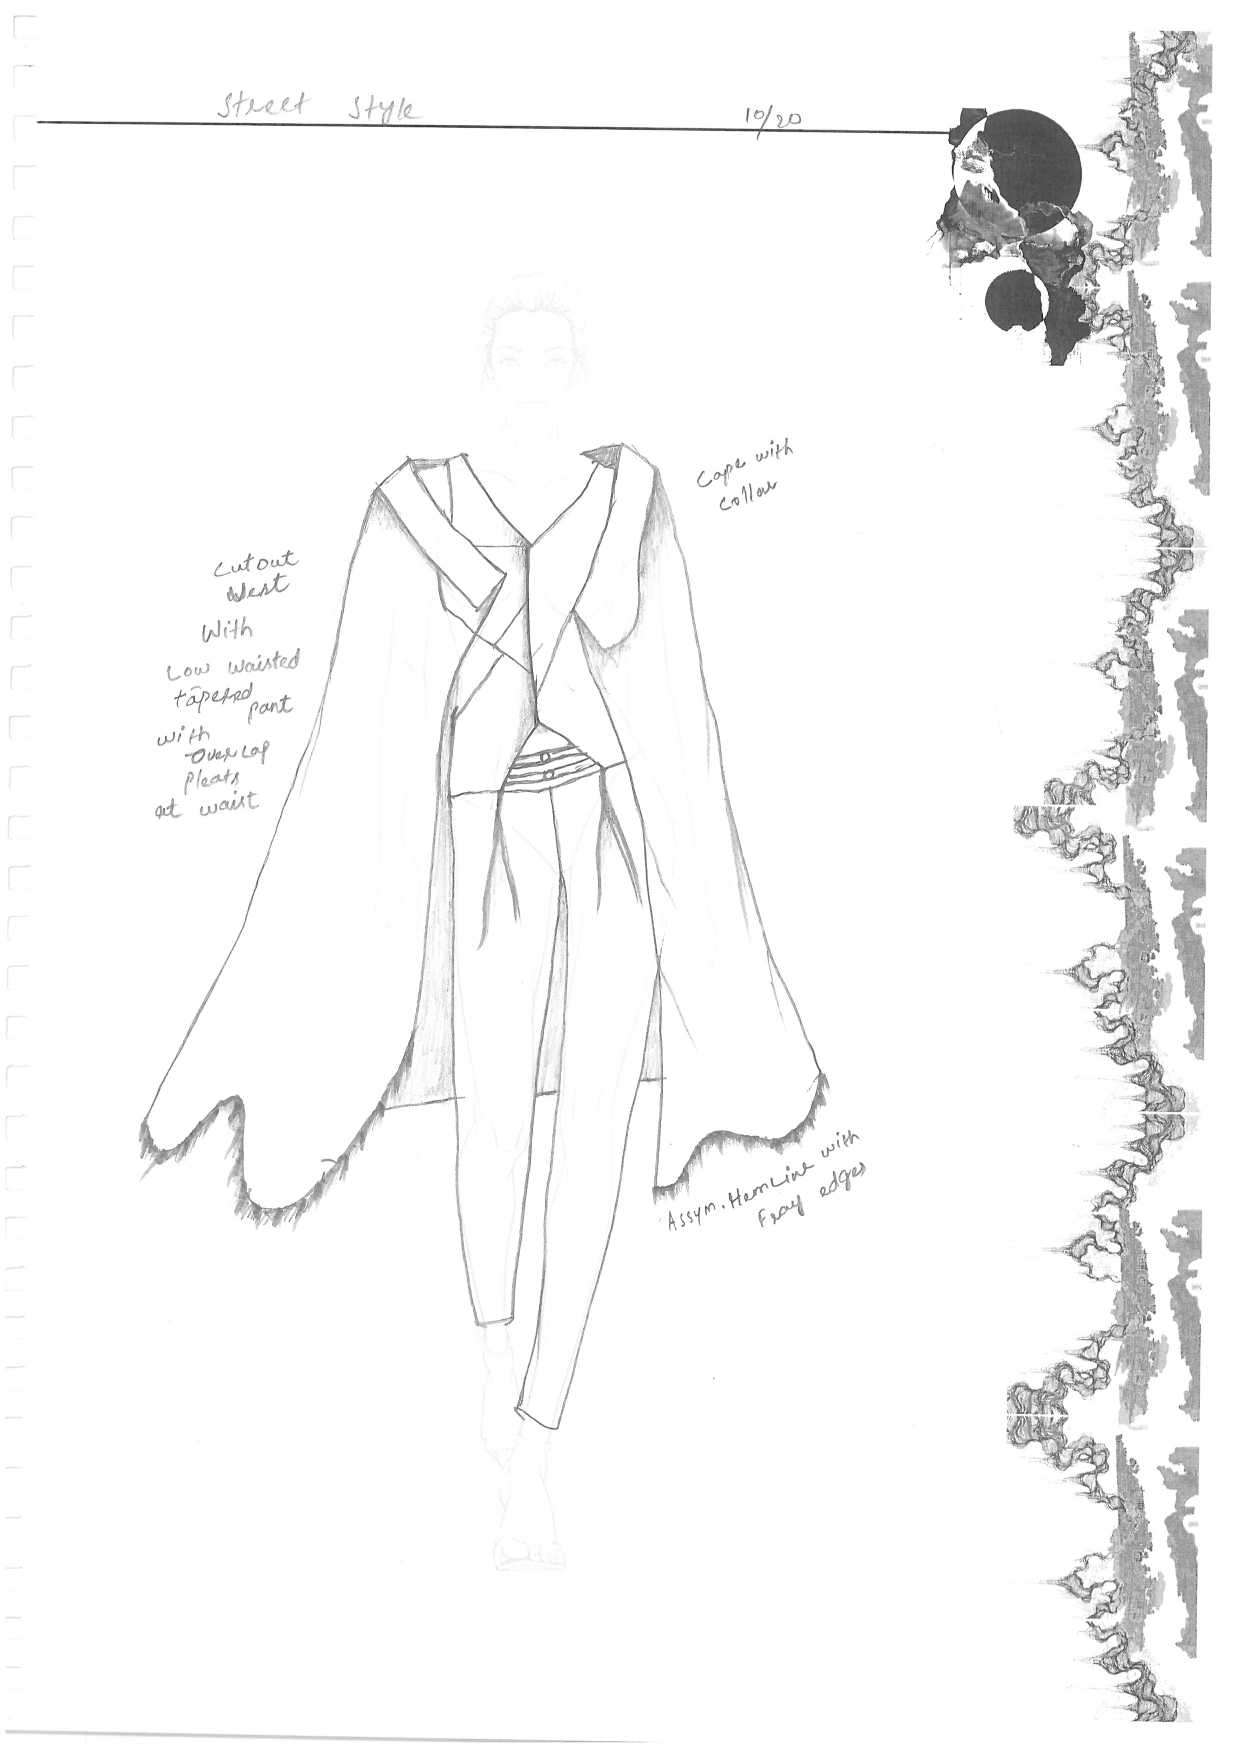 Street Style
10/20
Cape with
Collar
Cutout
Vest
With
Low waisted
tapered
pant
with
overlap
pleats
at waist
Assym. HemLine with
Fray edges